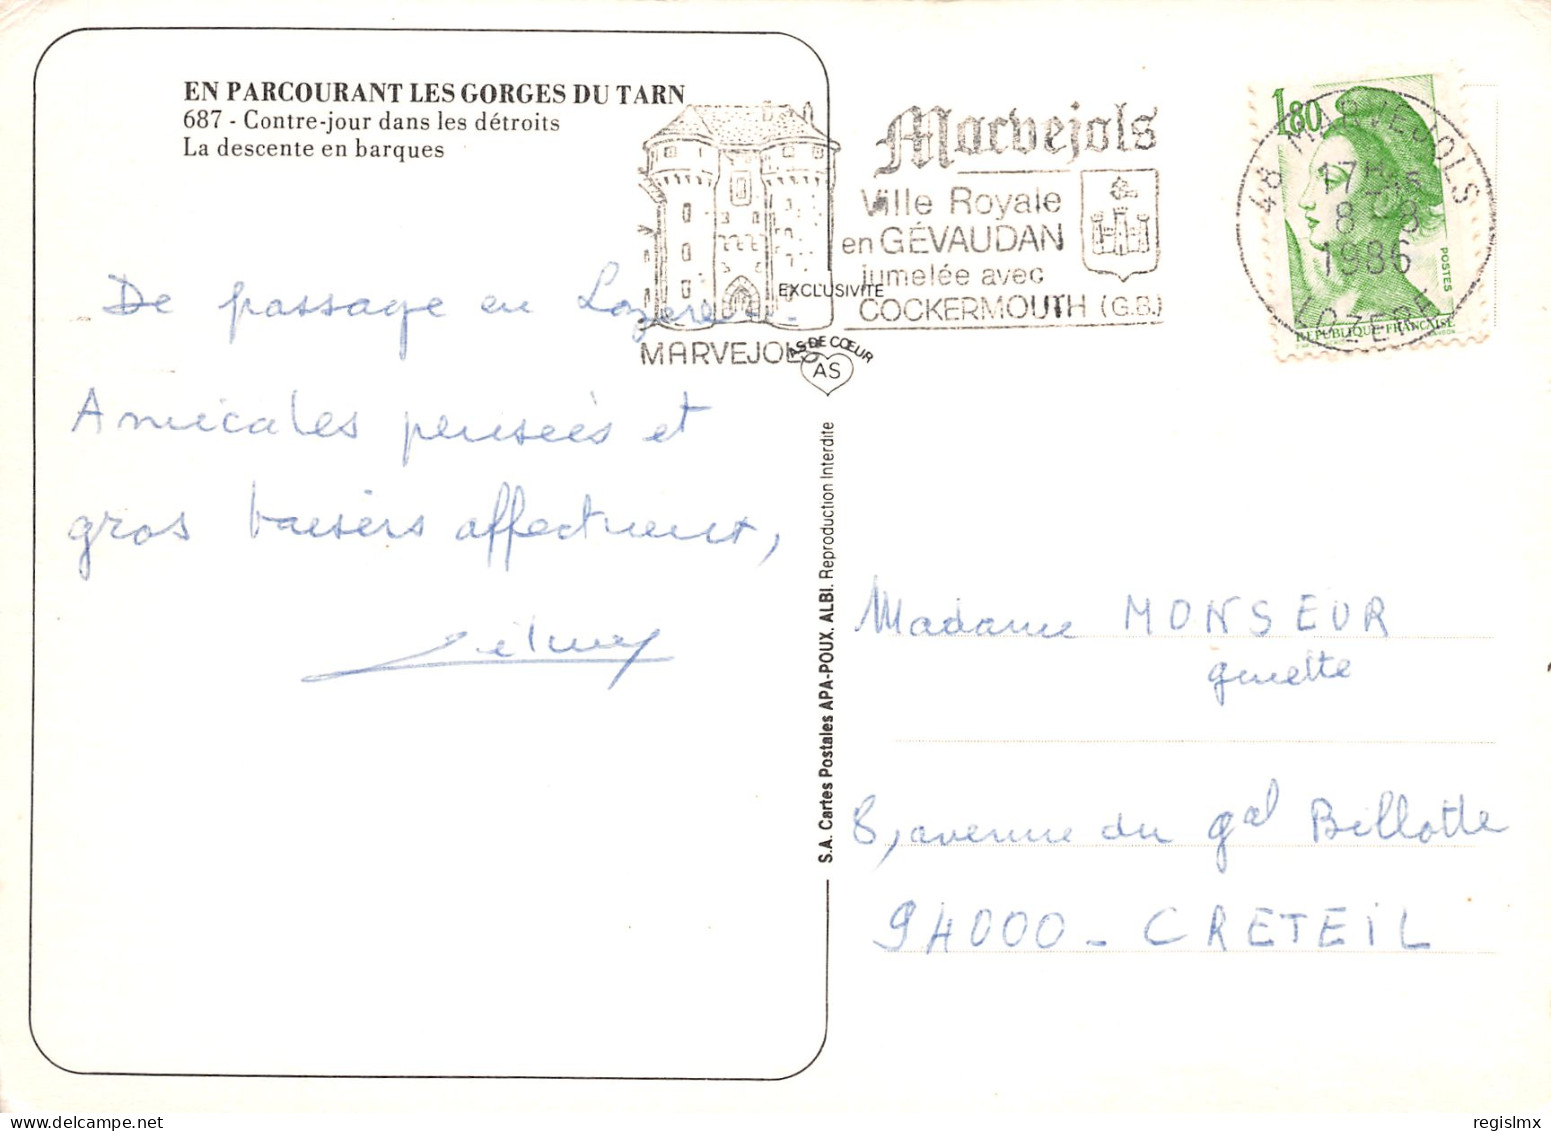 EN PARCOURANT LES GORGES DU TARN
687 - Contre-jour dans les détroits
La descente en barques
De passage en Lozère.
Amicales pensées et
gros baisers affectueux,
MARVEJOLS
Marvejols
Ville Royale
en GÉVAUDAN
jumelée avec
COCKERMOUTH (G.B.)
EXCLUSIVITÉ
AS DE CŒUR
AS
S.A. Cartes Postales APA-POUX. ALBI. Reproduction Interdite
1,80
POSTES
REPUBLIQUE FRANÇAISE
48 MARVEJOLS
17H
8 - 8
1986
LOZERE
Madame MONSEUR
ginette
8, avenue du gal Billotte
94000 - CRETEIL
regislmx